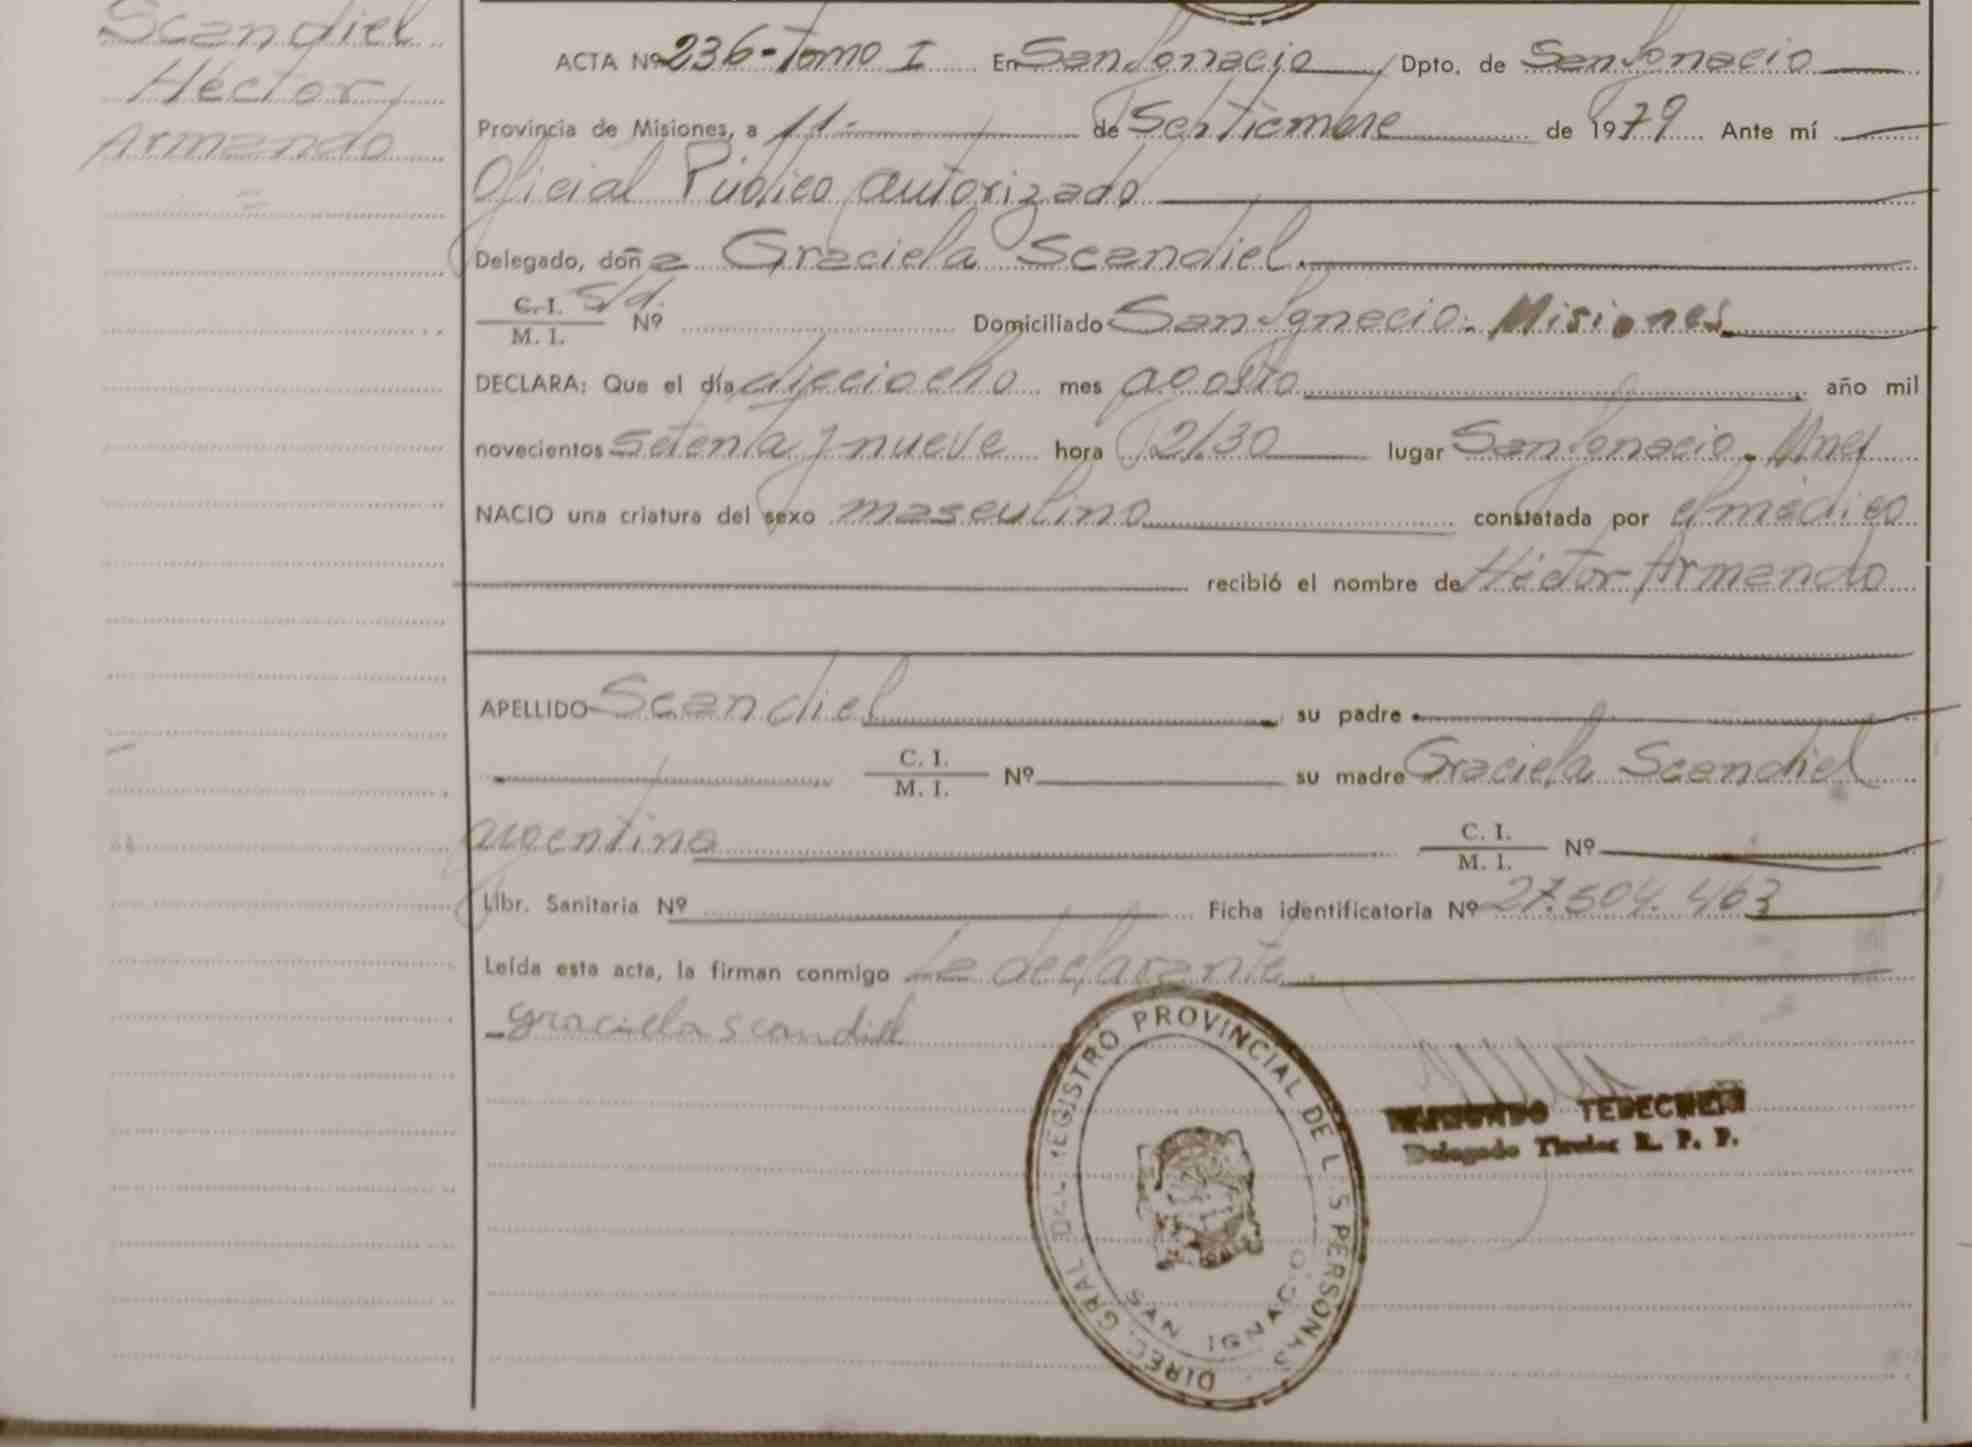 Scandiel
Héctor
Armando
=
ACTA Nº 236-Tomo I En San Ignacio Dpto. de San Ignacio
Provincia de Misiones, a 11- de Septiembre de 1979 Ante mí
Oficial Público autorizado
Delegado, doña Graciela Scandiel.
C. I. s/d.
M. I. Nº Domiciliado San Ignacio. Misiones
DECLARA: Que el día dieciocho mes agosto año mil
novecientos setenta y nueve hora 12/.30 lugar San Ignacio. Mnes
NACIO una criatura del sexo masculino constatada por el médico
recibió el nombre de Héctor Armando
APELLIDO Scandiel su padre
C. I.
M. I. Nº su madre Graciela Scandiel
argentina C. I.
M. I. Nº
Libr. Sanitaria Nº Ficha identificatoria Nº 27.504.463
Leída esta acta, la firman conmigo la declarante.
Graciela Scandiel
DIREC. GRAL DEL REGISTRO PROVINCIAL DE L S PERSONAS
SAN IGNACIO
Delegado Titular R. P. P.